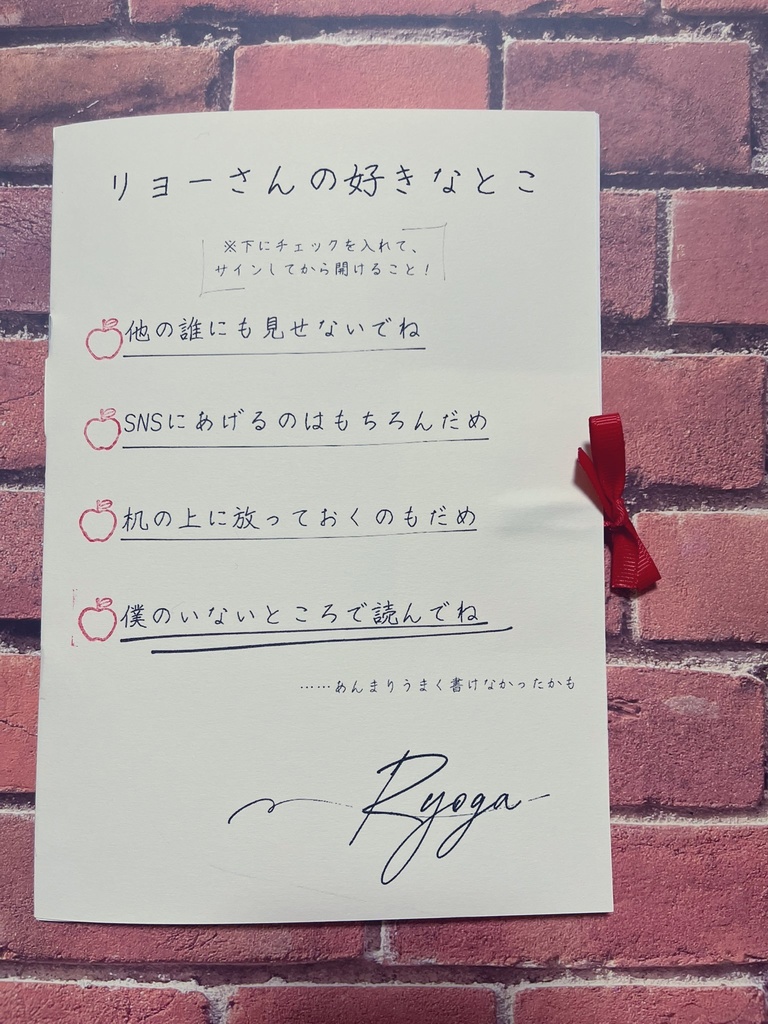 リョーさんの好きなとこ
※下にチェックを入れて、
サインしてから開けること！
他の誰にも見せないでね
SNSにあげるのはもちろんだめ
机の上に放っておくのもだめ
僕のいないところで読んでね
……あんまりうまく書けなかったかも
Ryoga